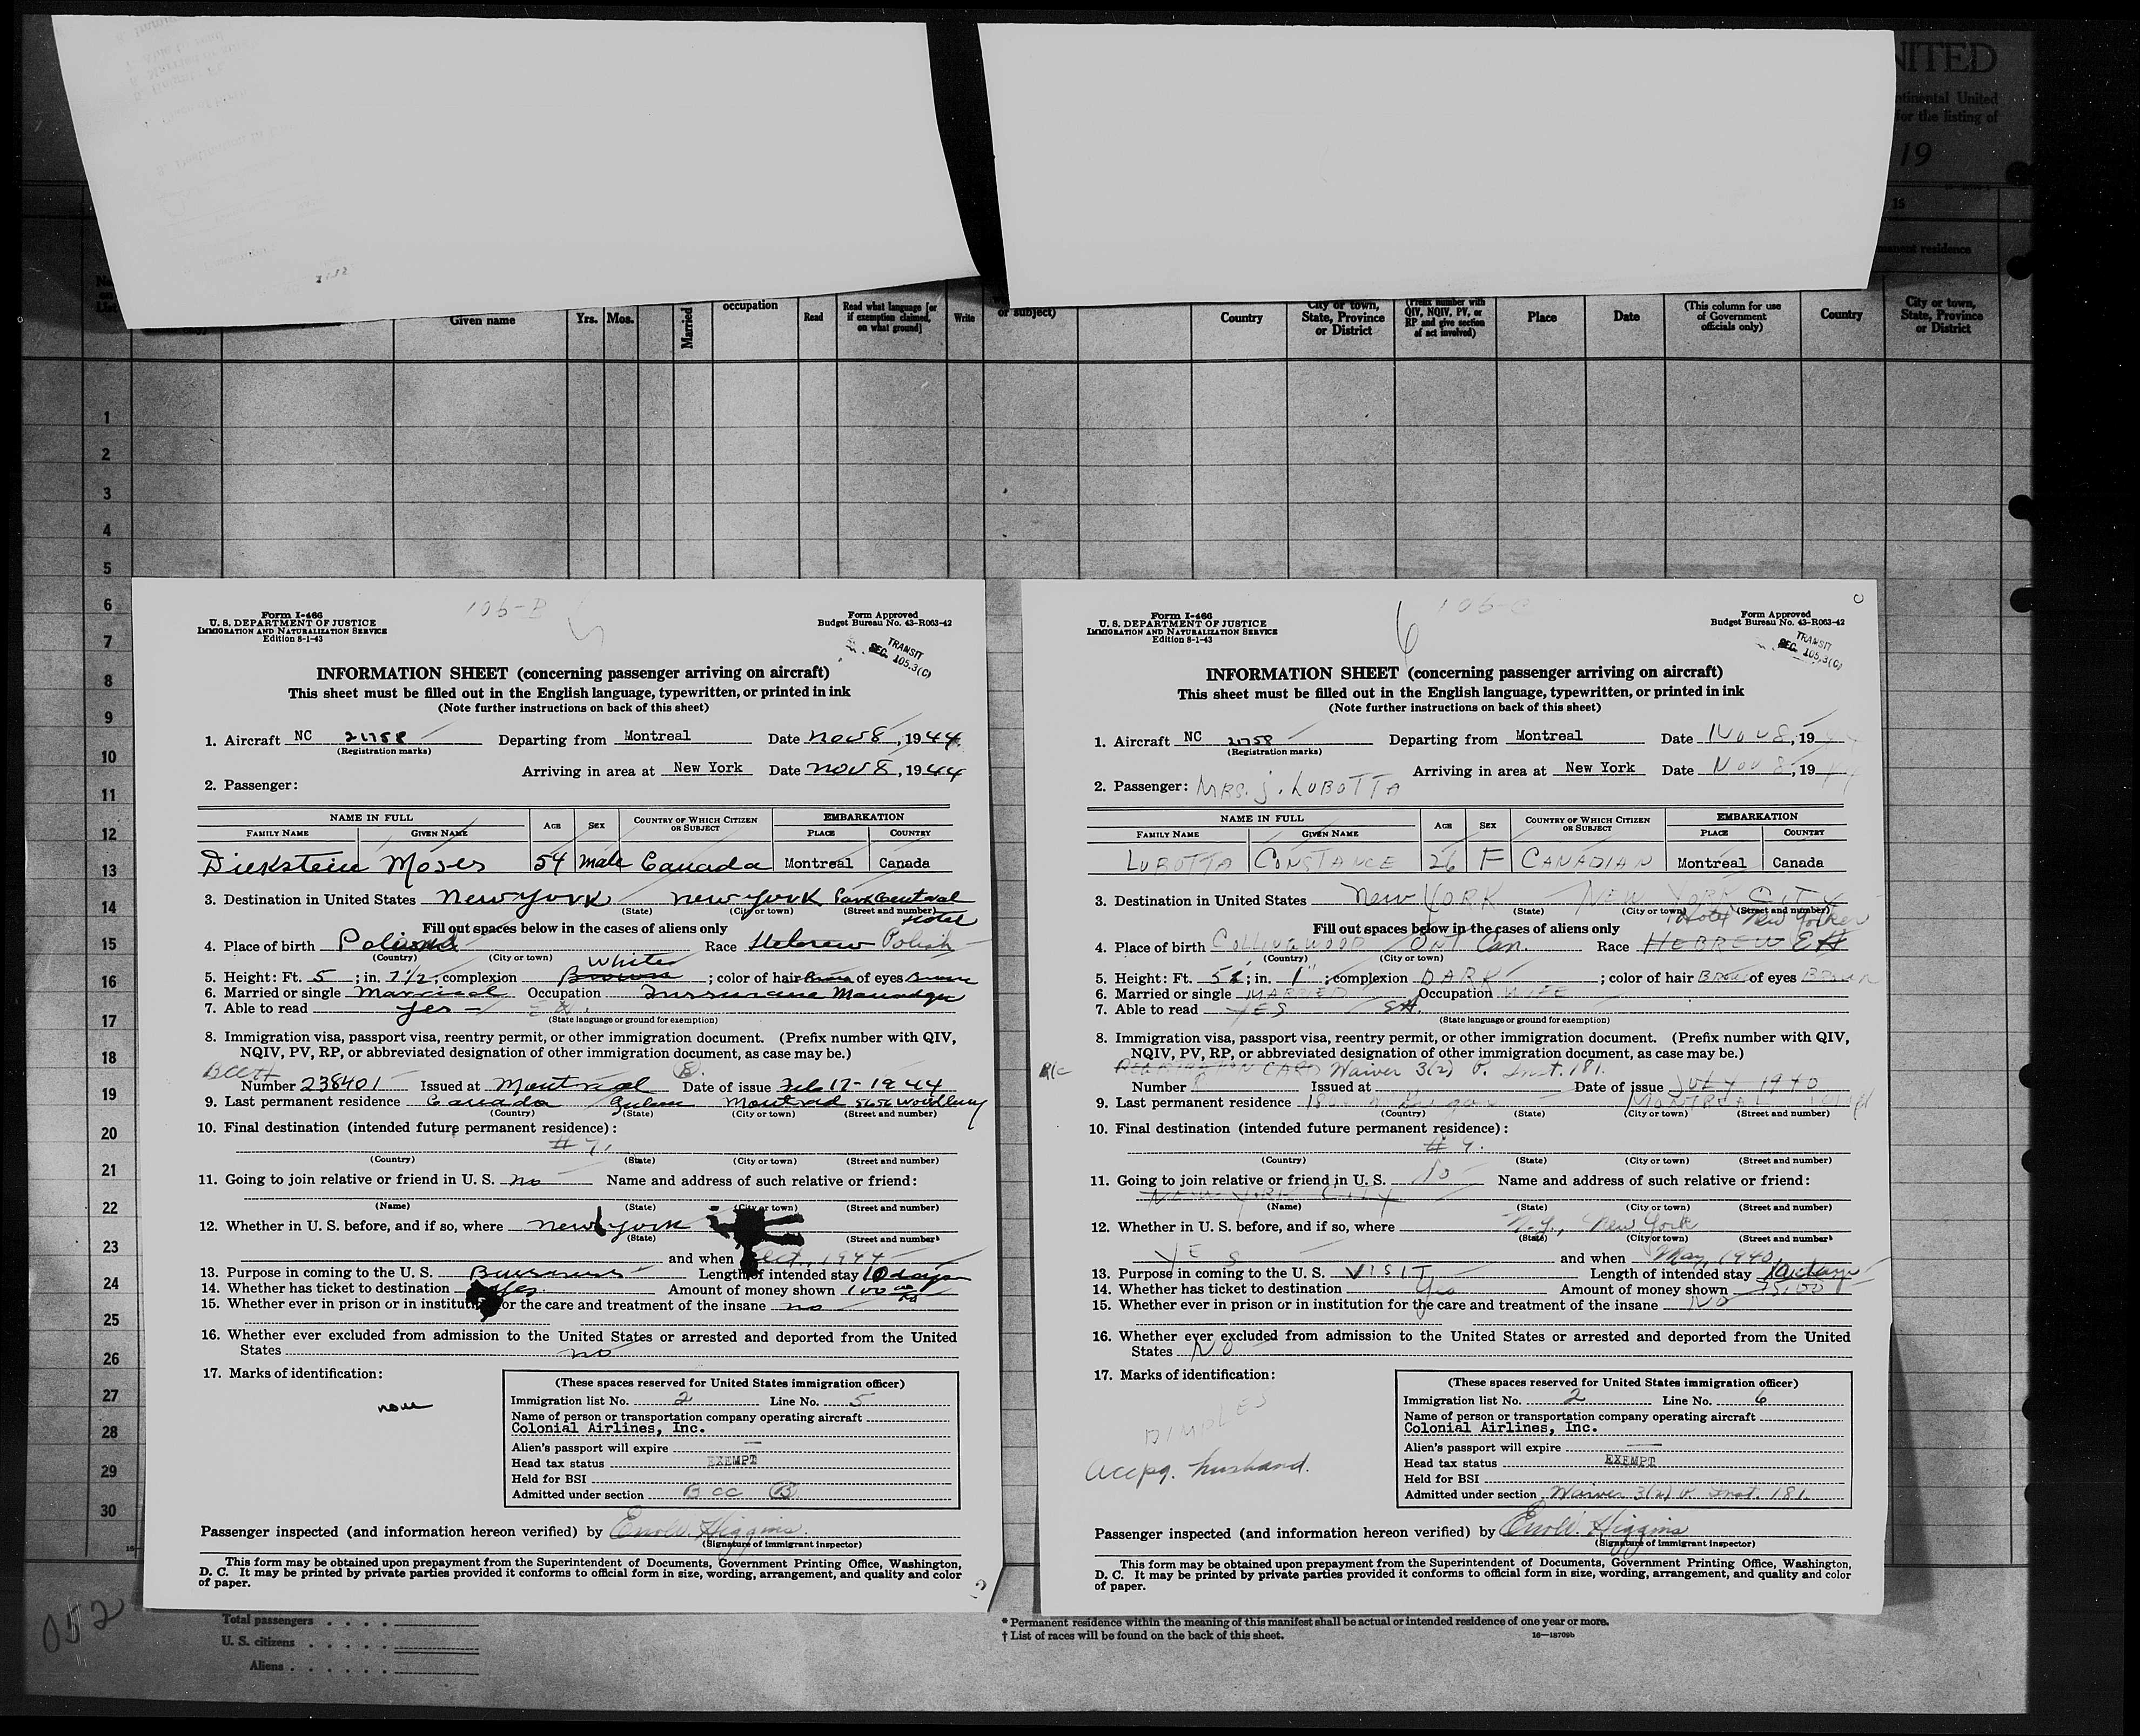 NITED
ntinental United
for the listing of
19
15
manent residence
Given name Yrs. Mos. Married occupation Read Read what language [or if exemption claimed, on what ground] Write or subject) Country City or town, State, Province or District (Prefix number with QIV, NQIV, PV, or RP and give section of act involved) Place Date (This column for use of Government officials only) Country City or town, State, Province or District
1
2
3
4
5
6
7
8
9
10
11
12
13
14
15
16
17
18
19
20
21
22
23
24
25
26
27
28
29
30
106-B
Form I-466
U. S. DEPARTMENT OF JUSTICE
IMMIGRATION AND NATURALIZATION SERVICE
Edition 8-1-43
Form Approved
Budget Bureau No. 43-R063-42
TRANSIT
SEC. 105.3(C)
INFORMATION SHEET (concerning passenger arriving on aircraft)
This sheet must be filled out in the English language, typewritten, or printed in ink
(Note further instructions on back of this sheet)
1. Aircraft NC 21758 Departing from Montreal Date Nov 8, 1944
(Registration marks)
Arriving in area at New York Date Nov 8, 1944
2. Passenger:
NAME IN FULL AGE SEX COUNTRY OF WHICH CITIZEN OR SUBJECT EMBARKATION
FAMILY NAME GIVEN NAME PLACE COUNTRY
Dickstein Moses 54 male Canada Montreal Canada
3. Destination in United States New York new york Park Central
(State) (City or town) (Street and number)
Hotel
Fill out spaces below in the cases of aliens only
4. Place of birth Poland Race Hebrew Polish
(Country) (City or town)
White
5. Height: Ft. 5; in. 7 1/2; complexion Brown; color of hair Brown of eyes Brown
6. Married or single Married Occupation Insurance Manager
7. Able to read yes
(State language or ground for exemption)
8. Immigration visa, passport visa, reentry permit, or other immigration document. (Prefix number with QIV,
NQIV, PV, RP, or abbreviated designation of other immigration document, as case may be.)
Number 238401 Issued at Montreal Date of issue Feb 17-1944
9. Last permanent residence Canada Quebec Montreal 5656 Woodbury
(Country) (State) (City or town) (Street and number)
10. Final destination (intended future permanent residence):
# 9.
(Country) (State) (City or town) (Street and number)
11. Going to join relative or friend in U. S. no Name and address of such relative or friend:
(Name) (State) (City or town) (Street and number)
12. Whether in U. S. before, and if so, where New York
(State) (Street and number)
and when Oct, 1944
13. Purpose in coming to the U. S. Business Length of intended stay 10 days
14. Whether has ticket to destination Yes Amount of money shown 100
15. Whether ever in prison or in institution for the care and treatment of the insane no
16. Whether ever excluded from admission to the United States or arrested and deported from the United
States no
17. Marks of identification:
none
(These spaces reserved for United States immigration officer)
Immigration list No. 2 Line No. 5
Name of person or transportation company operating aircraft
Colonial Airlines, Inc.
Alien's passport will expire —
Head tax status EXEMPT
Held for BSI
Admitted under section B CC B
Passenger inspected (and information hereon verified) by Errol W. Higgins
(Signature of immigrant inspector)
This form may be obtained upon prepayment from the Superintendent of Documents, Government Printing Office, Washington,
D. C. It may be printed by private parties provided it conforms to official form in size, wording, arrangement, and quality and color
of paper.
6 106-C
Form I-466
U. S. DEPARTMENT OF JUSTICE
IMMIGRATION AND NATURALIZATION SERVICE
Edition 8-1-43
Form Approved
Budget Bureau No. 43-R063-42
TRANSIT
SEC. 105.3(C)
INFORMATION SHEET (concerning passenger arriving on aircraft)
This sheet must be filled out in the English language, typewritten, or printed in ink
(Note further instructions on back of this sheet)
1. Aircraft NC 21758 Departing from Montreal Date Nov 8, 1944
(Registration marks)
Arriving in area at New York Date Nov 8, 1944
2. Passenger: MRS. J. LUBOTTA
NAME IN FULL AGE SEX COUNTRY OF WHICH CITIZEN OR SUBJECT EMBARKATION
FAMILY NAME GIVEN NAME PLACE COUNTRY
LUBOTTA CONSTANCE 26 F CANADIAN Montreal Canada
3. Destination in United States New York NEW YORK CITY
(State) (City or town) (Street and number)
Hotel New Yorker
Fill out spaces below in the cases of aliens only
4. Place of birth COLLINGWOOD ONT Can. Race HEBREW
(Country) (City or town)
5. Height: Ft. 5; in. 1"; complexion DARK; color of hair Brown of eyes Brown
6. Married or single MARRIED Occupation WIFE
7. Able to read YES
(State language or ground for exemption)
8. Immigration visa, passport visa, reentry permit, or other immigration document. (Prefix number with QIV,
NQIV, PV, RP, or abbreviated designation of other immigration document, as case may be.)
REGISTRATION CARD Waiver 3(2) O. Inst. 181.
Number Issued at Date of issue JULY 1940
9. Last permanent residence MONTREAL
(Country) (State) (City or town) (Street and number)
10. Final destination (intended future permanent residence):
# 9.
(Country) (State) (City or town) (Street and number)
11. Going to join relative or friend in U. S. No Name and address of such relative or friend:
NEW YORK CITY
(Name) (State) (City or town) (Street and number)
12. Whether in U. S. before, and if so, where N.Y., New York
(State) (City or town) (Street and number)
YES and when May, 1940
13. Purpose in coming to the U. S. VISIT Length of intended stay 10 days
14. Whether has ticket to destination Yes Amount of money shown
15. Whether ever in prison or in institution for the care and treatment of the insane No
16. Whether ever excluded from admission to the United States or arrested and deported from the United
States No
17. Marks of identification:
DIMPLES
Accpg. husband.
(These spaces reserved for United States immigration officer)
Immigration list No. 2 Line No. 6
Name of person or transportation company operating aircraft
Colonial Airlines, Inc.
Alien's passport will expire —
Head tax status EXEMPT
Held for BSI
Admitted under section Waiver 3(2) O. Inst. 181
Passenger inspected (and information hereon verified) by Errol W. Higgins
(Signature of immigrant inspector)
This form may be obtained upon prepayment from the Superintendent of Documents, Government Printing Office, Washington,
D. C. It may be printed by private parties provided it conforms to official form in size, wording, arrangement, and quality and color
of paper.
052
Total passengers . . . .
U. S. citizens . . . . .
Aliens . . . . . .
* Permanent residence within the meaning of this manifest shall be actual or intended residence of one year or more.
† List of races will be found on the back of this sheet.
16—18709b